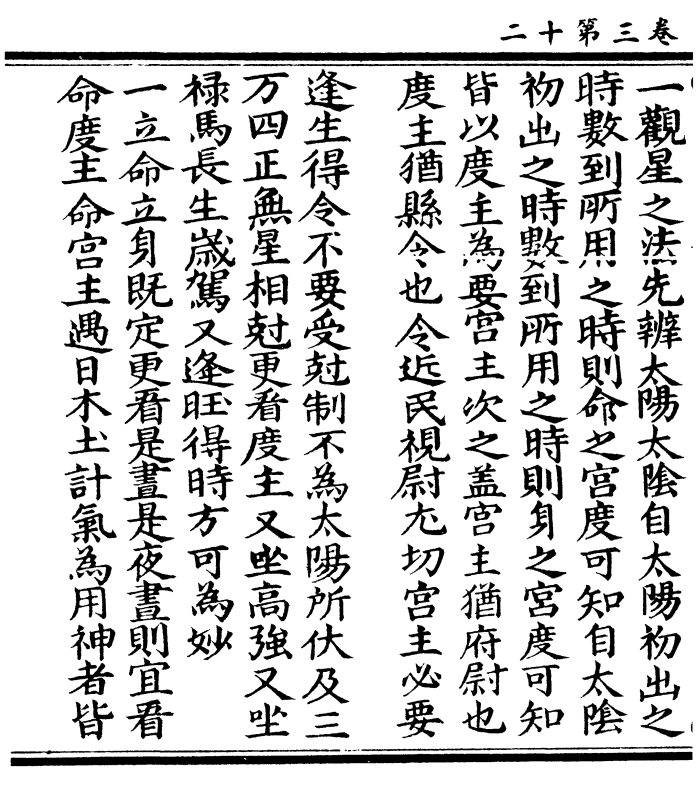 卷三第十二
一觀星之法先辨太陽太陰自太陽初出之
時數到所用之時則命之宮度可知自太陰
初出之時數到所用之時則身之宮度可知
皆以度主為要宮主次之盖宮主猶府尉也
度主猶縣令也令近民視尉尤切宮主必要
逢生得令不要受尅制不為太陽所伏及三
方四正無星相尅更看度主又坐高強又坐
禄馬長生嵗駕又逢旺得時方可為妙
一立命立身既定更看是晝是夜晝則宜看
命度主命宮主遇日木土計氣為用神者皆